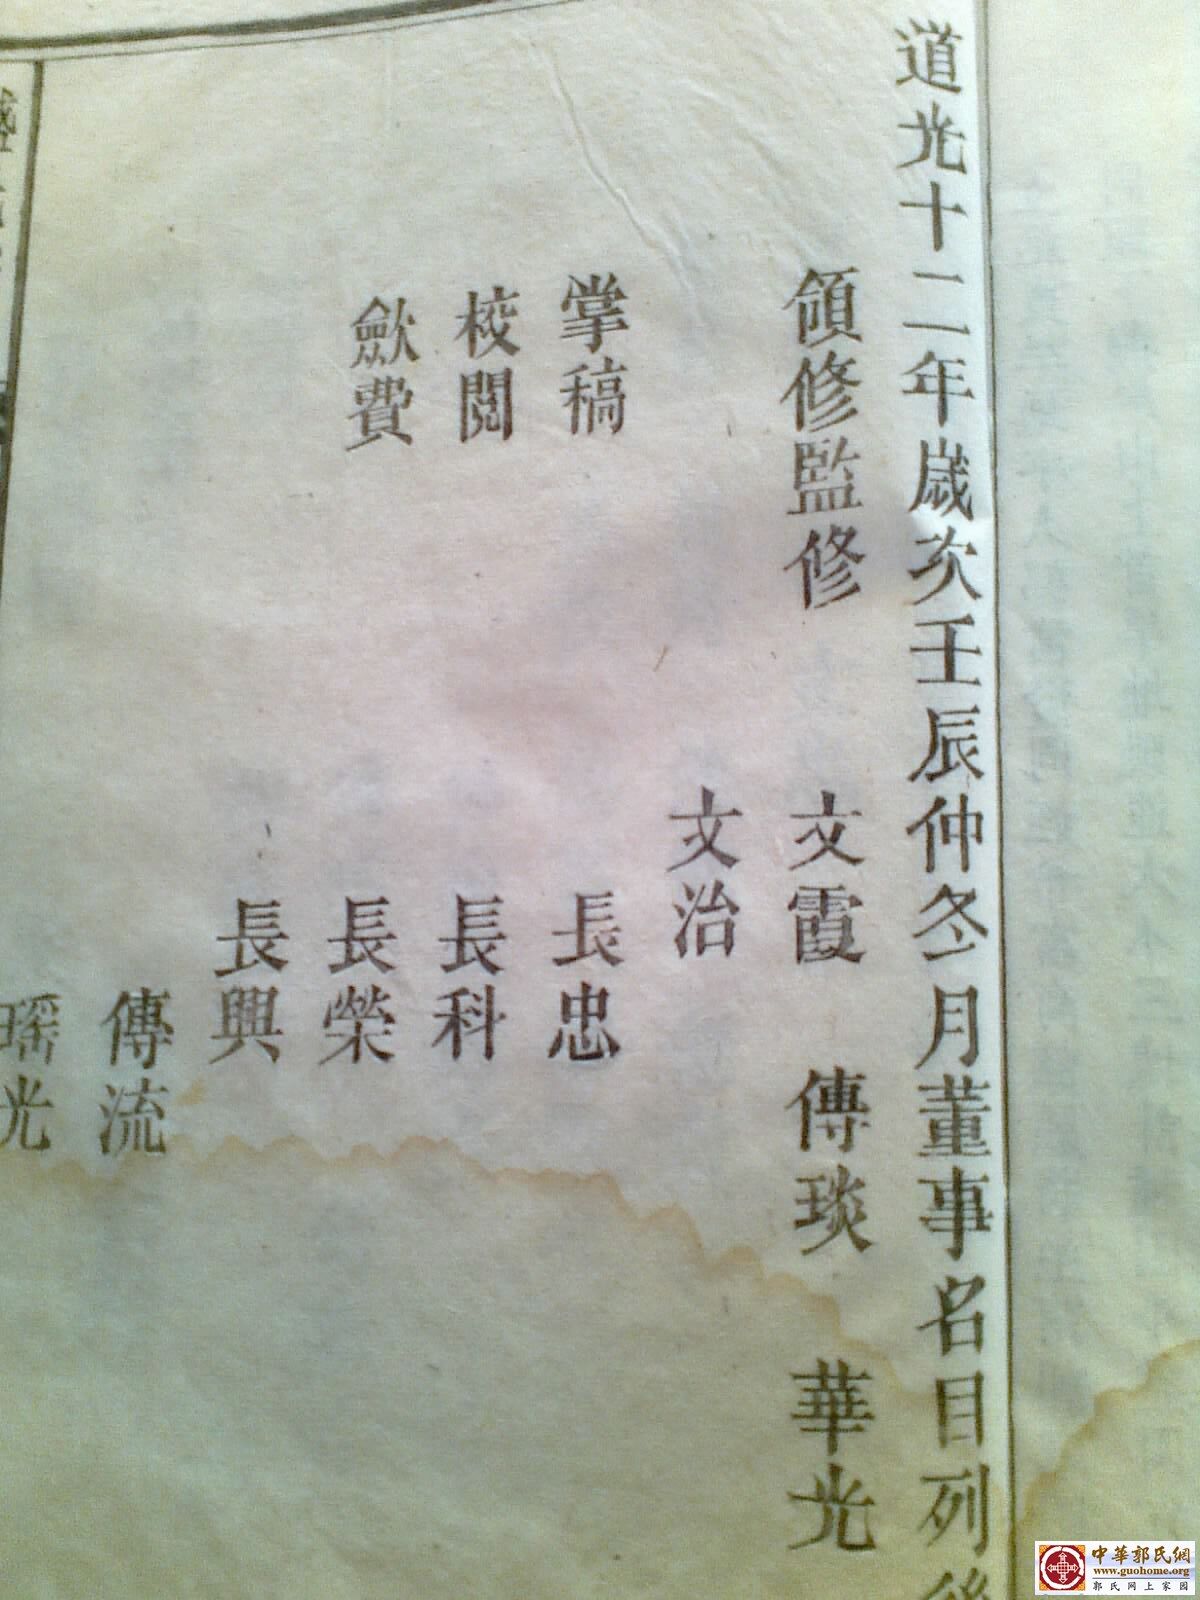 道光十二年歲次壬辰仲冬月董事名目列後
領修監修 文霞 傳琰 華光
文治
掌稿 長忠
校閱 長科
歛費 長榮
長興
傳流
瑶光
中華郭氏網
www.guohome.org
郭氏网上家园